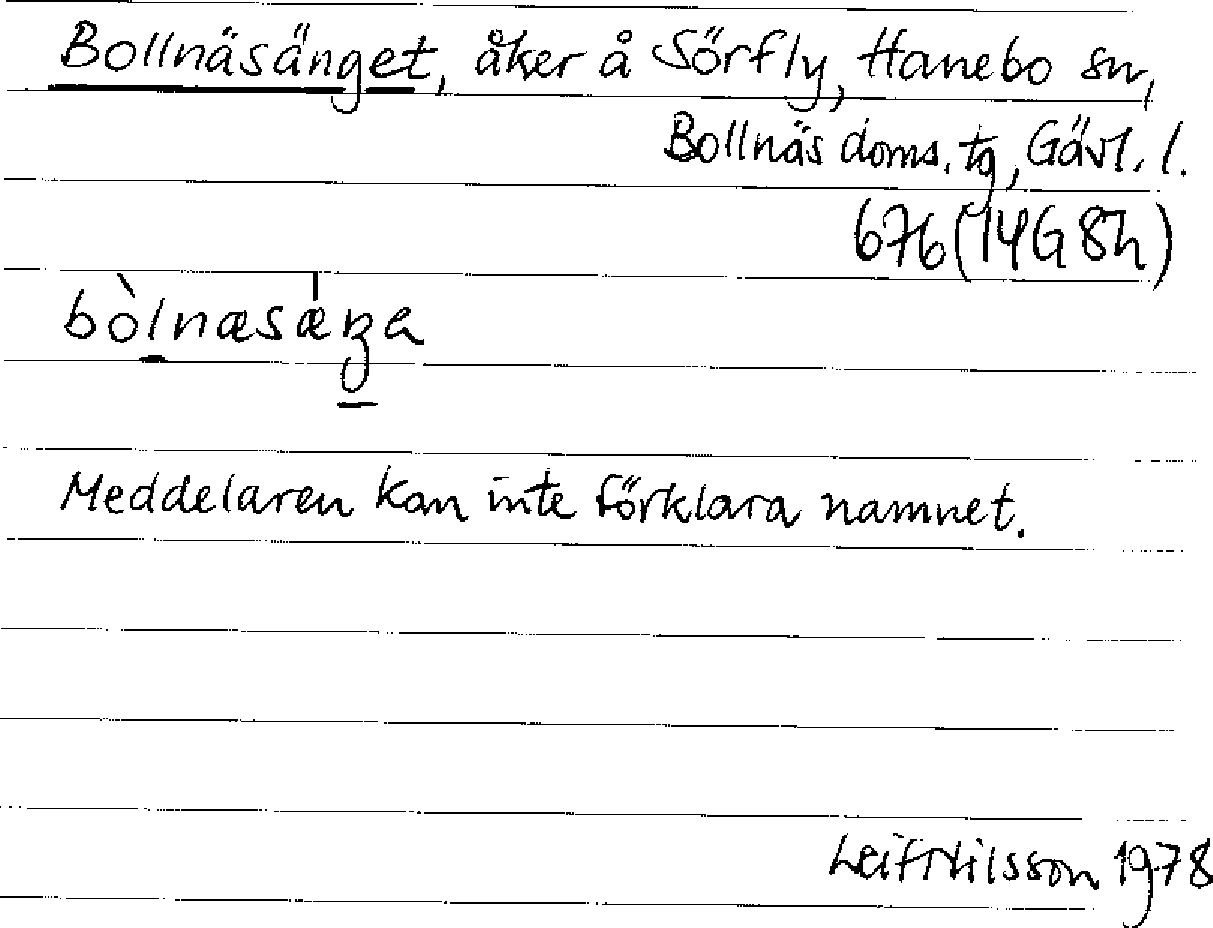 Bollnäsänget, åker å Sörfly, Hanebo sn,
Bollnäs doms.tg, Gävl. l.
676 (14G 8h)
bòlnæsæ̍ŋa
Meddelaren kan inte förklara namnet.
Leif Nilsson 1978